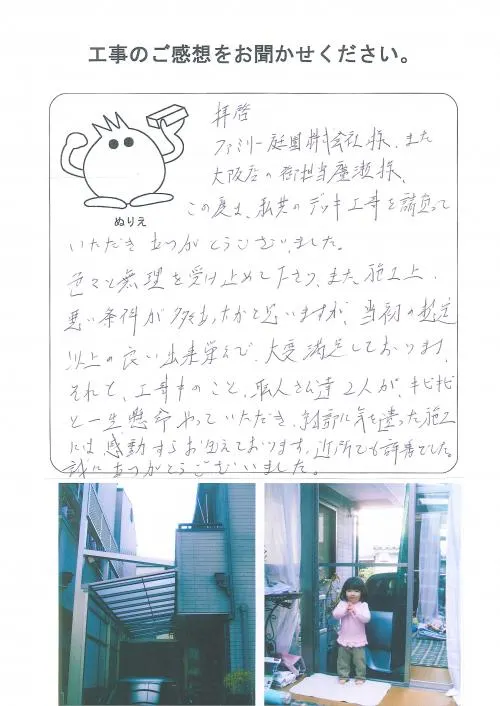 工事のご感想をお聞かせください。
拝啓
ファミリー庭園株式会社様、また
大阪店の御担当廣瀬様、
ぬりえ
この度は、私共のデッキ工事を請負って
いただきありがとうございました。
色々と無理を受け止めて下さり、また、施工上、
悪い条件が多くあったかと思いますが、当初の想定
以上の良い出来栄えで、大変満足しております。
それと、工事中のこと、職人さん達2人が、キビキビ
と一生懸命やっていただき、細部に気を遣った施工
には感動すら覚えております。近所でも評判でした。
誠にありがとうございました。